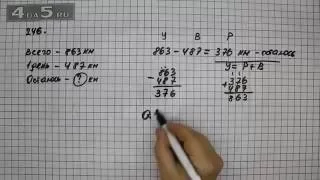 4DS.RU
246.
У В Р
Всего – 863 км
1 день – 487 км
Осталось – ? км
863 – 487 = 376 км – осталось
– 863
487
376
У = Р + В
+ 376
487
863